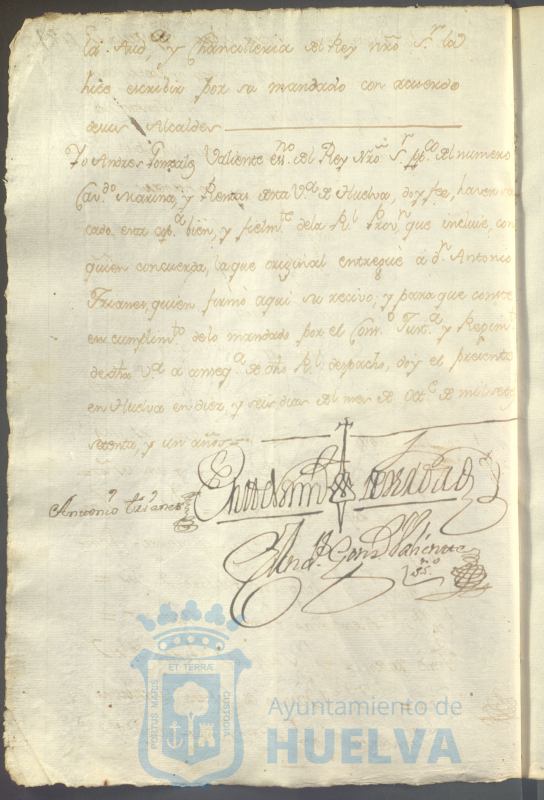 la Aud.ª, y Chancilleria del Rey nrô S.r la
hice escribir por su mandado con acuerdo
de sus Alcaldes
Yo Andres Gonzalez Valiente ess.no del Rey Nrô S.r pp.co del numero
Cav.do Marina, y Rentas desta V.ª de Huelva, doy fee, haver sa
cado esta cop.ª bien, y fielm.te de la R.l Prov.n que incluie, con
quien concuerda, la que original entreguè á d.n Antonio
Trianes, quien firmò aquí su recivo; y para que conste
en cumplim.to de lo mandado por el Con.º Just.ª y Regim.to
de dha V.ª a conseq.ª de dho R.l despacho, doy el presente
en Huelva en diez, y seis dias del mes de Oct.e de mil sete
setenta, y un años
Antonio Trianes
And.s Gonz.s Valiente
ss.no
ET TERRÆ
PORTUS MARIS
CUSTODIA
Ayuntamiento de
HUELVA